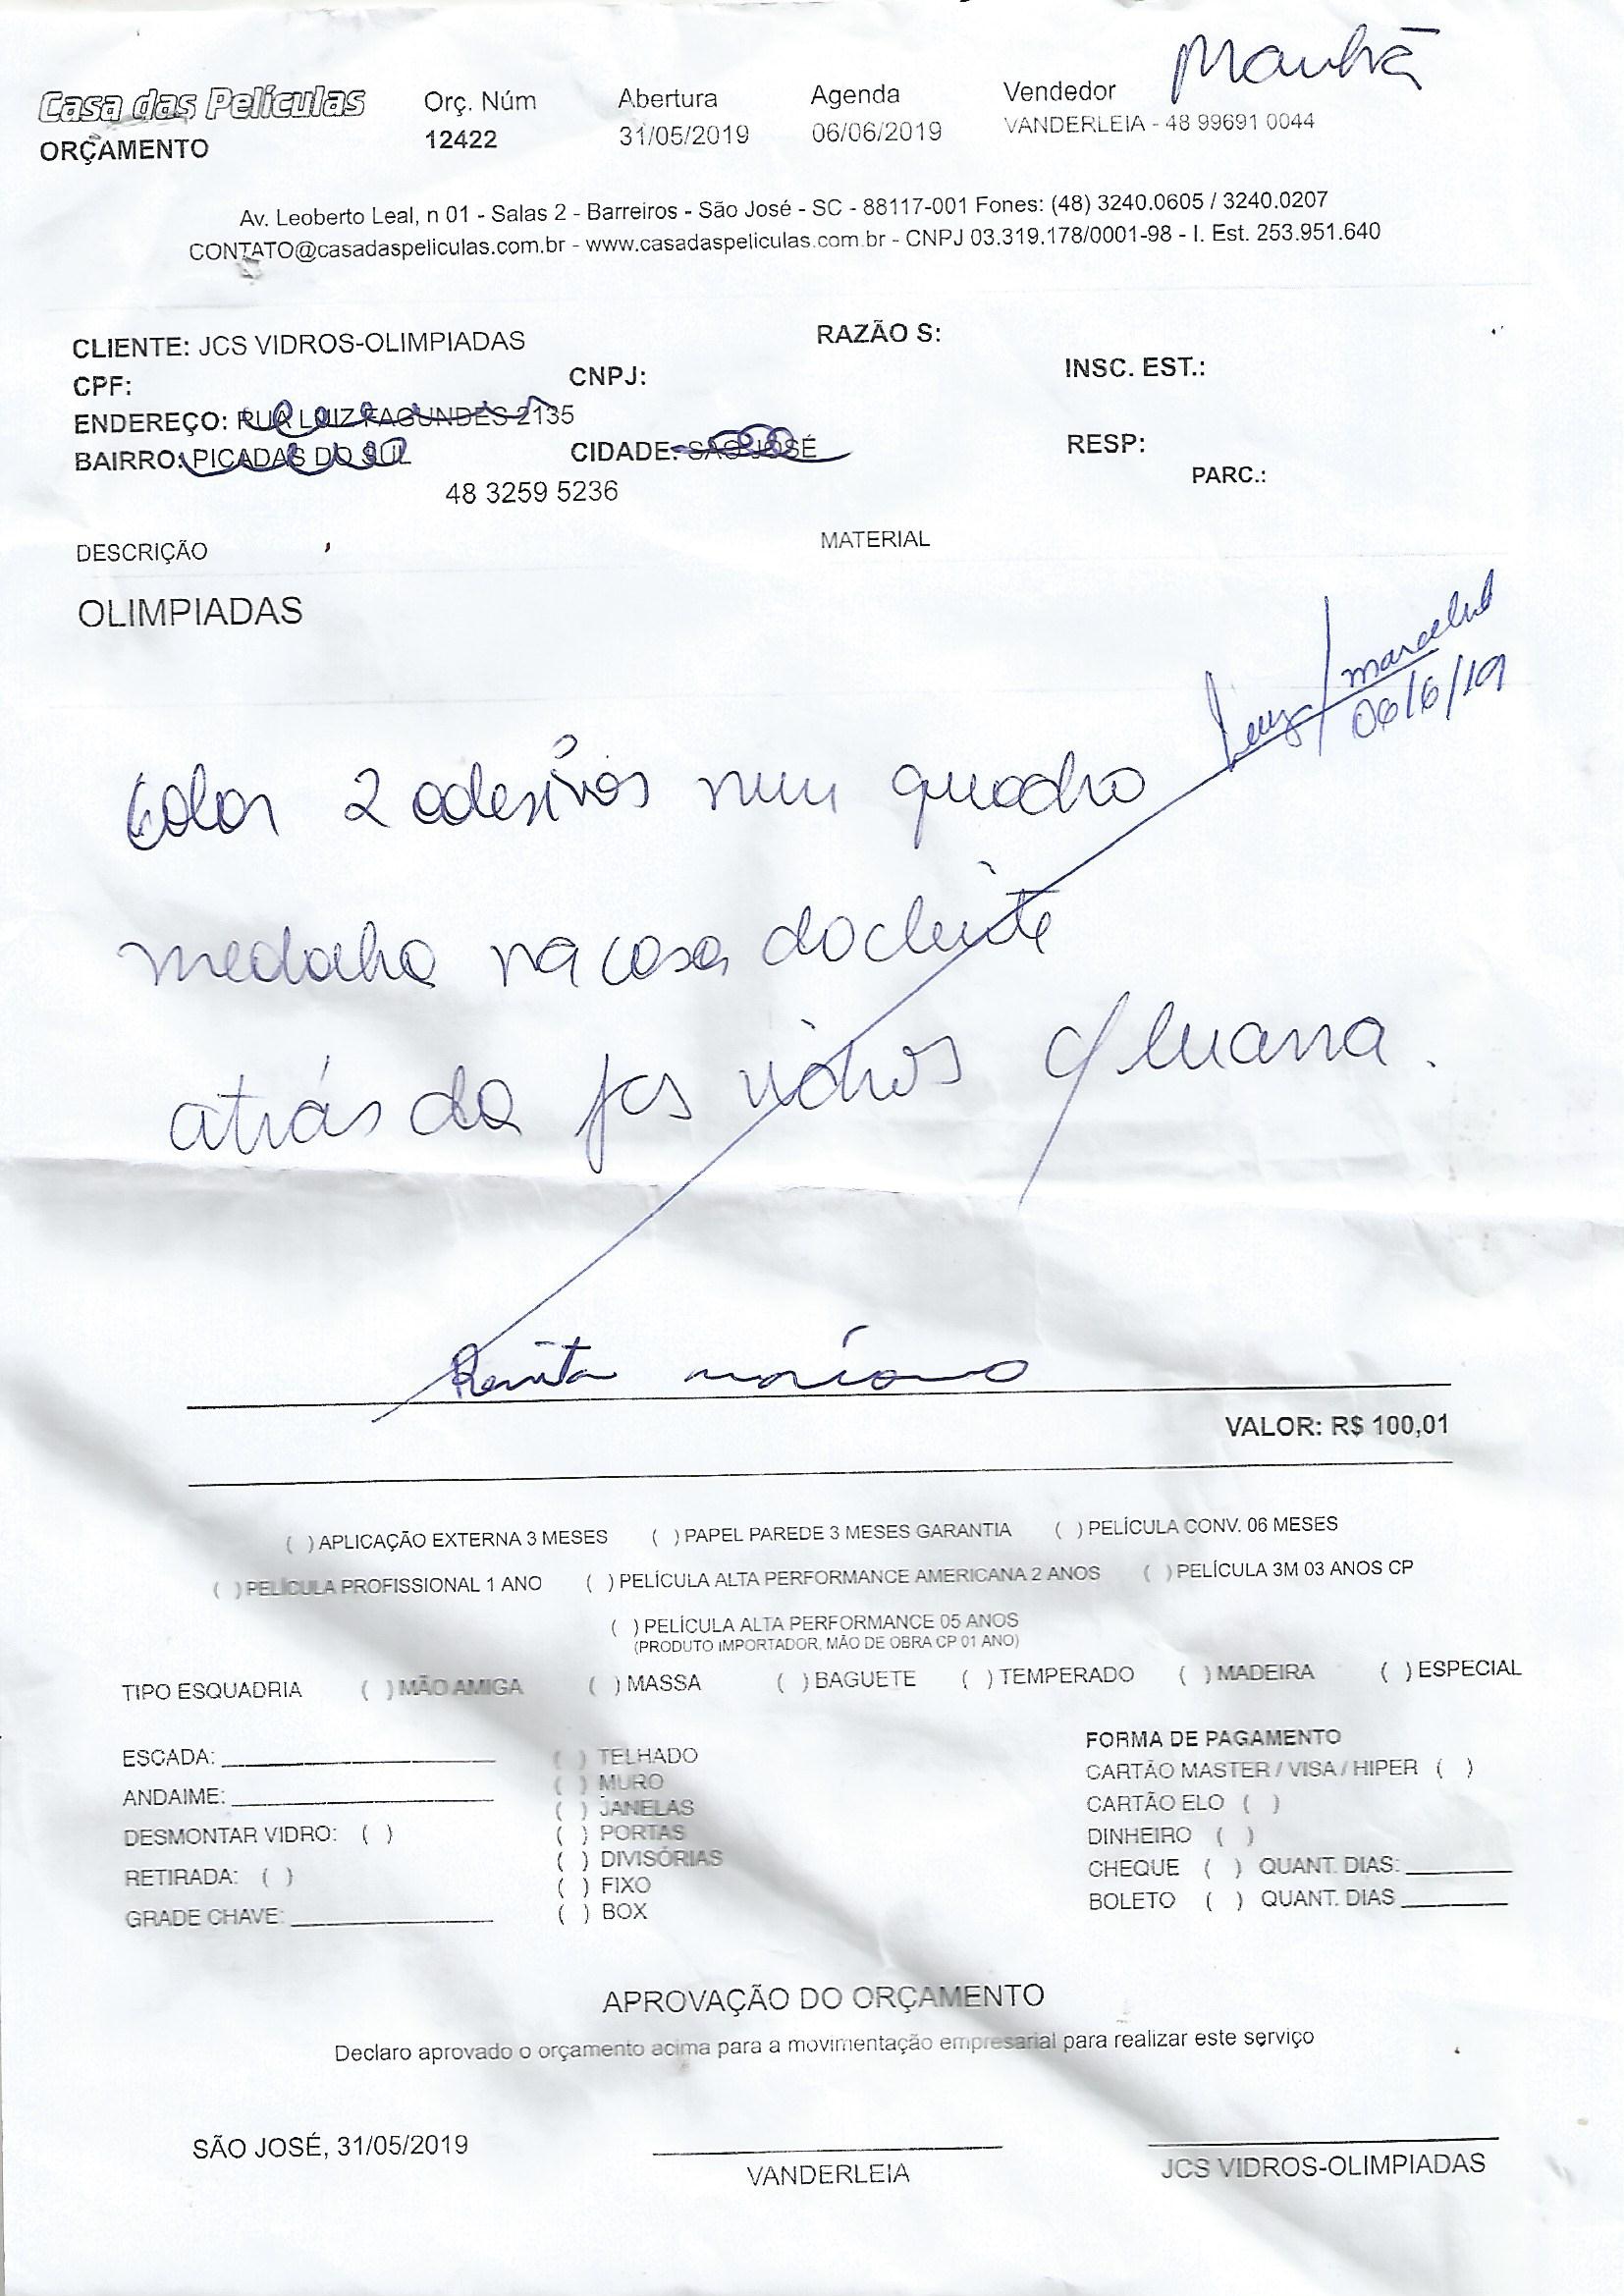 Manhã
Casa das Películas
Orç. Núm Abertura Agenda Vendedor
ORÇAMENTO 12422 31/05/2019 06/06/2019 VANDERLEIA - 48 99691 0044
Av. Leoberto Leal, n 01 - Salas 2 - Barreiros - São José - SC - 88117-001 Fones: (48) 3240.0605 / 3240.0207
CONTATO@casadaspeliculas.com.br - www.casadaspeliculas.com.br - CNPJ 03.319.178/0001-98 - I. Est. 253.951.640
CLIENTE: JCS VIDROS-OLIMPIADAS RAZÃO S:
CPF: CNPJ: INSC. EST.:
ENDEREÇO: RUA LUIZ FAGUNDES 2135
BAIRRO: PICADAS DO SUL CIDADE: SAO JOSÉ RESP:
PARC.:
48 3259 5236
DESCRIÇÃO MATERIAL
OLIMPIADAS
06/6/19
Colar 2 adesivos num quadro
medalha na casa do cliente
atrás da jcs vidros c/ Luana.
VALOR: R$ 100,01
( ) APLICAÇÃO EXTERNA 3 MESES ( ) PAPEL PAREDE 3 MESES GARANTIA ( ) PELÍCULA CONV. 06 MESES
( ) PELÍCULA PROFISSIONAL 1 ANO ( ) PELÍCULA ALTA PERFORMANCE AMERICANA 2 ANOS ( ) PELÍCULA 3M 03 ANOS CP
( ) PELÍCULA ALTA PERFORMANCE 05 ANOS
(PRODUTO IMPORTADOR, MÃO DE OBRA CP 01 ANO)
TIPO ESQUADRIA ( ) MÃO AMIGA ( ) MASSA ( ) BAGUETE ( ) TEMPERADO ( ) MADEIRA ( ) ESPECIAL
ESCADA:
ANDAIME:
DESMONTAR VIDRO: ( )
RETIRADA: ( )
GRADE CHAVE:
( ) TELHADO
( ) MURO
( ) JANELAS
( ) PORTAS
( ) DIVISÓRIAS
( ) FIXO
( ) BOX
FORMA DE PAGAMENTO
CARTÃO MASTER / VISA / HIPER ( )
CARTÃO ELO ( )
DINHEIRO ( )
CHEQUE ( ) QUANT. DIAS:
BOLETO ( ) QUANT. DIAS
APROVAÇÃO DO ORÇAMENTO
Declaro aprovado o orçamento acima para a movimentação empresarial para realizar este serviço
SÃO JOSÉ, 31/05/2019
VANDERLEIA
JCS VIDROS-OLIMPIADAS